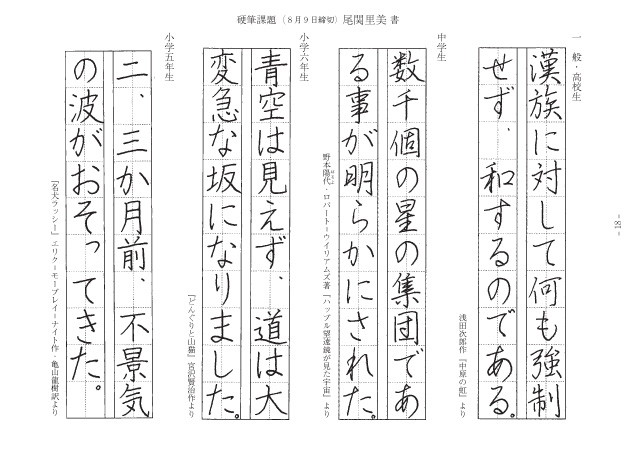 硬筆課題（８月９日締切）尾関里美 書
一般・高校生
漢族に対して何も強制
せず、和するのである。
浅田次郎作『中原の虹』より
中学生
数千個の星の集団であ
る事が明らかにされた。
野本陽代・ロバート＝ウイリアムズ著『ハッブル望遠鏡が見た宇宙』より
小学六年生
青空は見えず、道は大
変急な坂になりました。
『どんぐりと山猫』宮沢賢治作より
小学五年生
二、三か月前、不景気
の波がおそってきた。
『名犬ラッシー』エリク＝モーブレイ＝ナイト作 亀山龍樹訳より
- 18 -